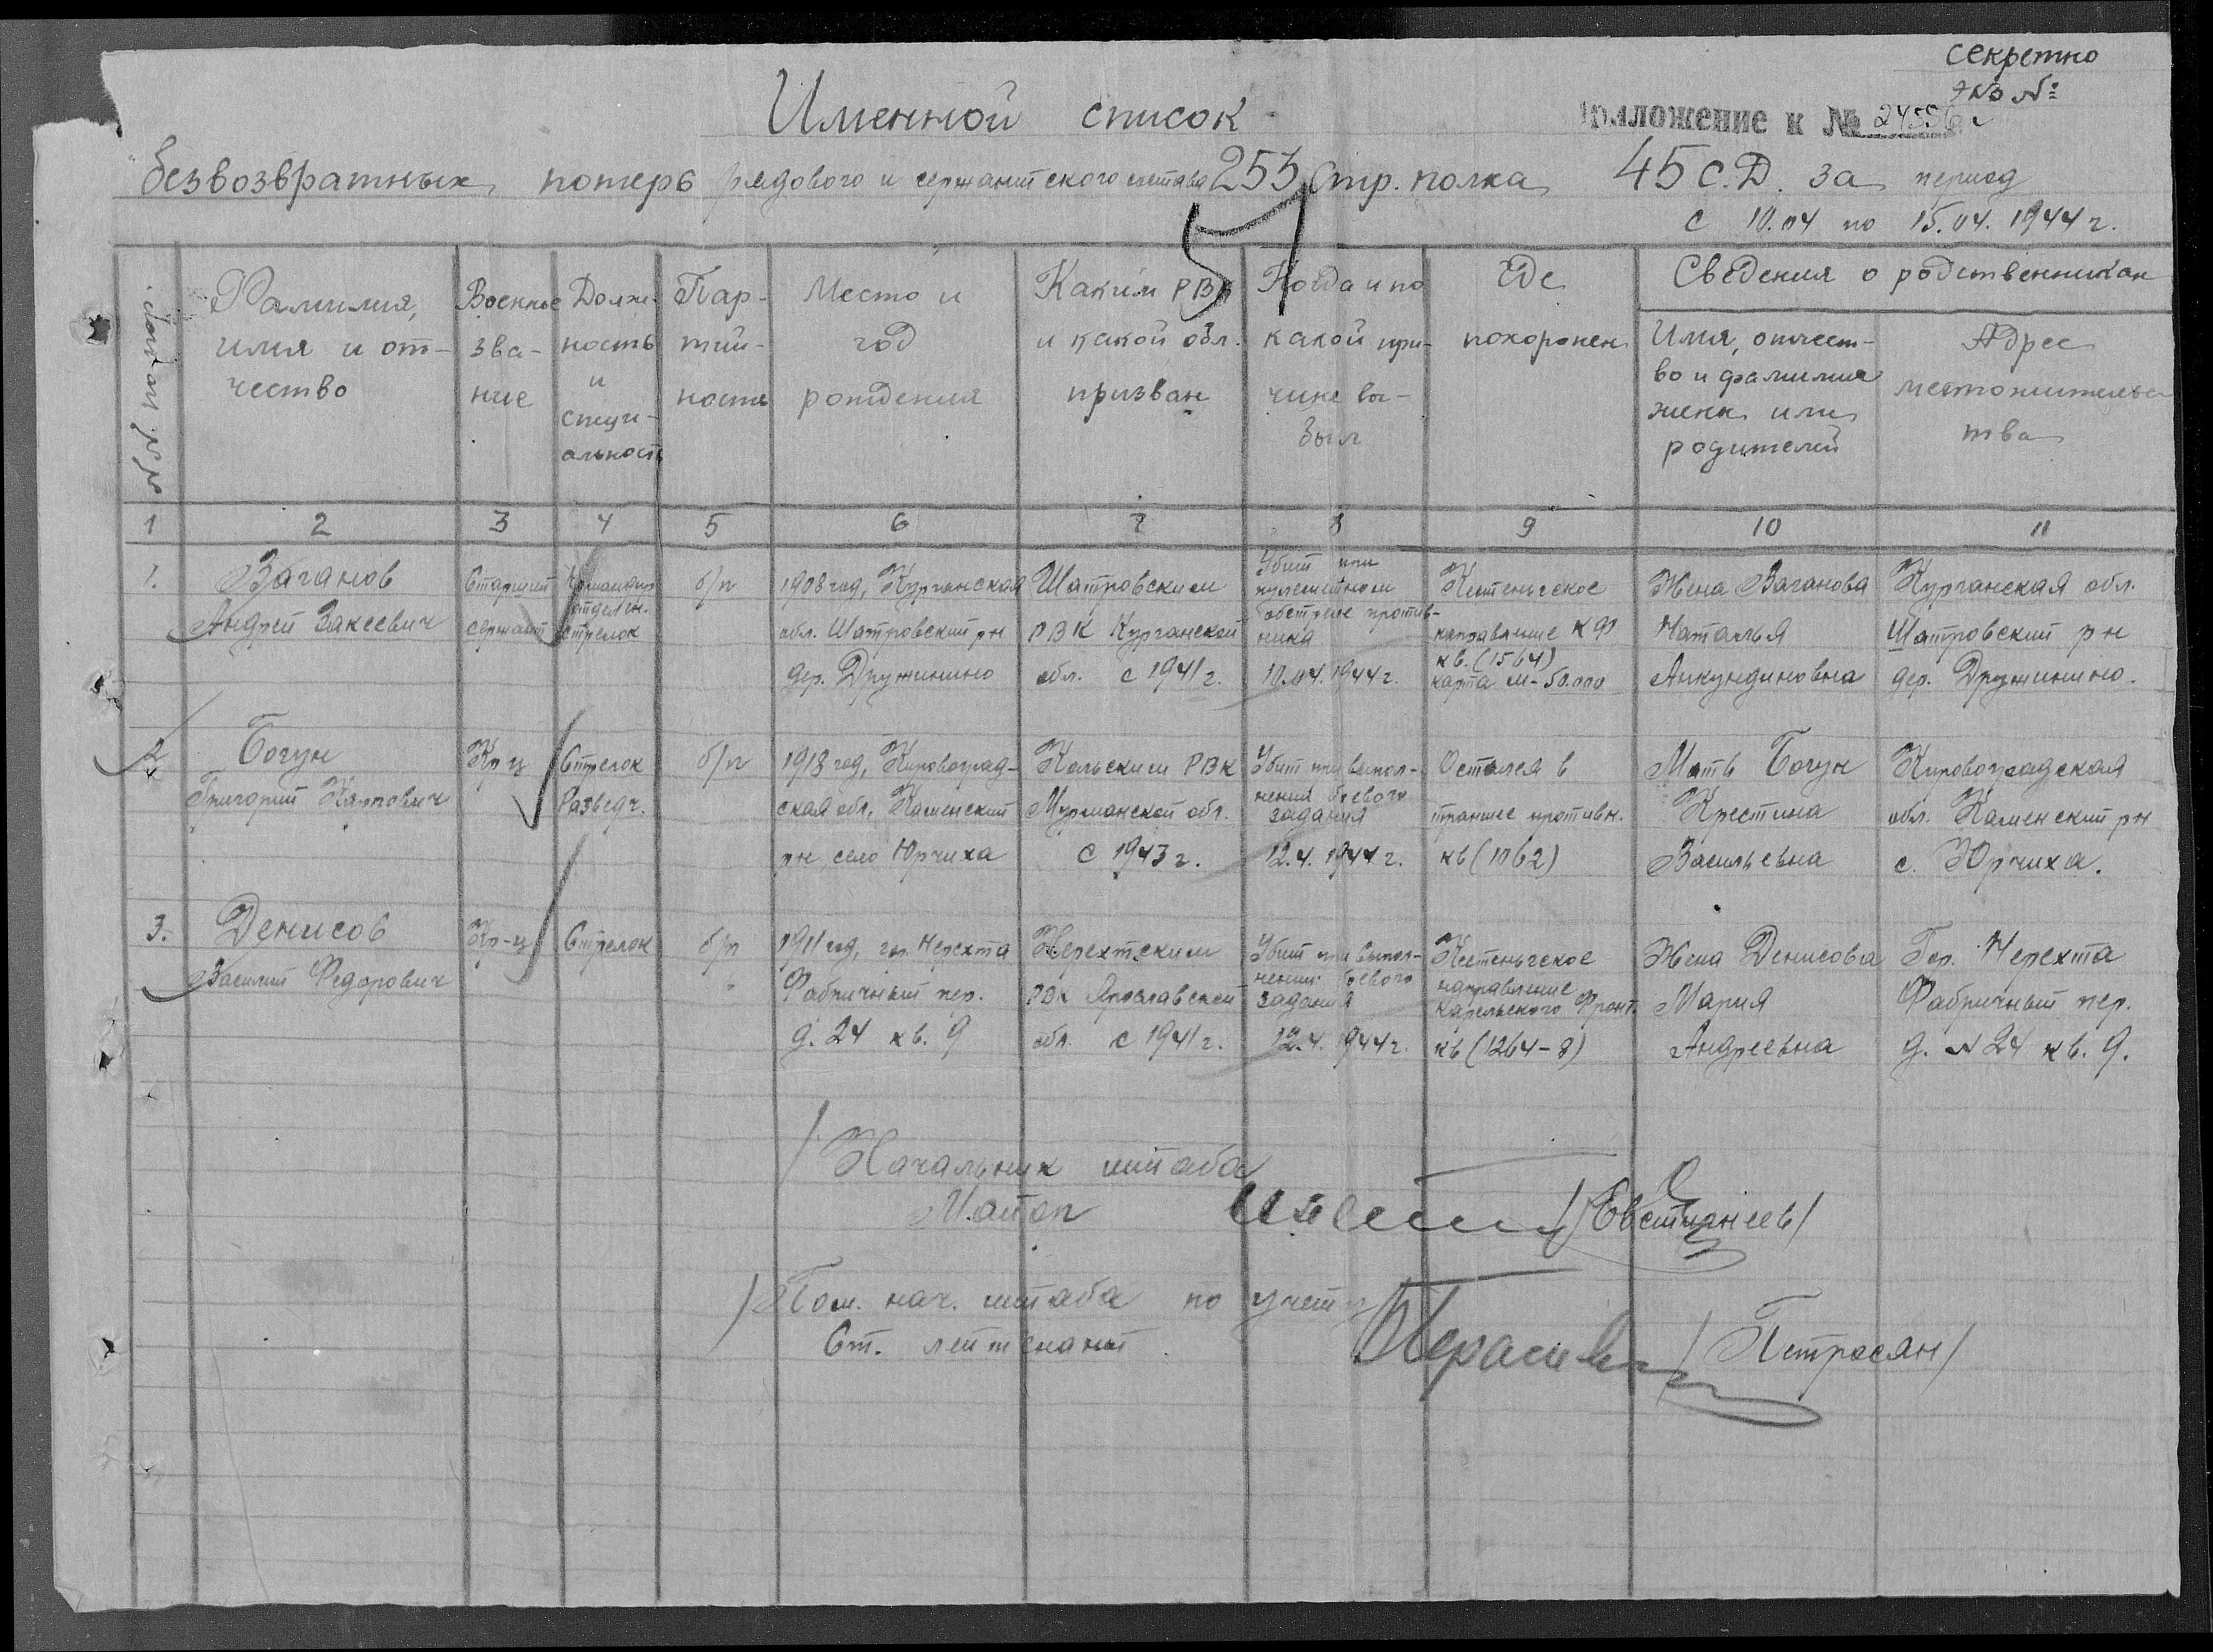 секретно
экз №
Приложение к № 24556с
Именной список
безвозвратных потерь рядового и сержантского состава 253 стр. полка 45 С.Д. за период
с 10.04 по 15.04.1944 г.
№№ по пор.
Фамилия, имя и отчество
Военное звание
Должность и специальность
Партийность
Место и год рождения
Каким РВК и какой обл. призван
Когда и по какой причине выбыл
Где похоронен
Сведения о родственниках
Имя, отчество и фамилия жены или родителей
Адрес местожительства
1 2 3 4 5 6 7 8 9 10 11
1.
Ваганов
Андрей Закеевич
Старший
сержант
Командир
отделен.
стрелок
б/п
1908 год, Курганская
обл. Шатровский рн
дер. Дружинино
Шатровским
РВК Курганской
обл. с 1941 г.
Убит при
пулеметном
обстреле против-
ника
10.04.1944 г.
Кестеньгское
направление КФ
кв. (1564)
карта м-50.000
Жена Ваганова
Наталья
Анкундиновна
Курганская обл.
Шатровский рн
дер. Дружинино.
2
Богун
Григорий Карпович
Кр-ц
Стрелок
Разведч.
б/п
1918 год, Кировоград-
ская обл, Каменский
рн, село Юрчиха
Кольским РВК
Мурманской обл.
с 1943 г.
Убит при выпол-
нении боевого
задания
12.4.1944 г.
Остался в
траншее противн.
кв (1062)
Мать Богун
Крестина
Васильевна
Кировоградская
обл. Каменский рн
с. Юрчиха.
3.
Денисов
Василий Федорович
Кр-ц
Стрелок
б/п
1911 год, гор. Нерехта
Фабричный пер.
д. 24 кв. 9
Нерехтским
РВК Ярославской
обл. с 1941 г.
Убит при выпол-
нении боевого
задания
12.4.1944 г.
Кестеньгское
направление
Карельского Фронт.
кв (1264-8)
Жена Денисова
Мария
Андреевна
Гор. Нерехта
Фабричный пер.
д. № 24 кв. 9.
Начальник штаба
Майор /Евстигнеев/
Пом. нач. штаба по учету
Ст. лейтенант /Петросян/